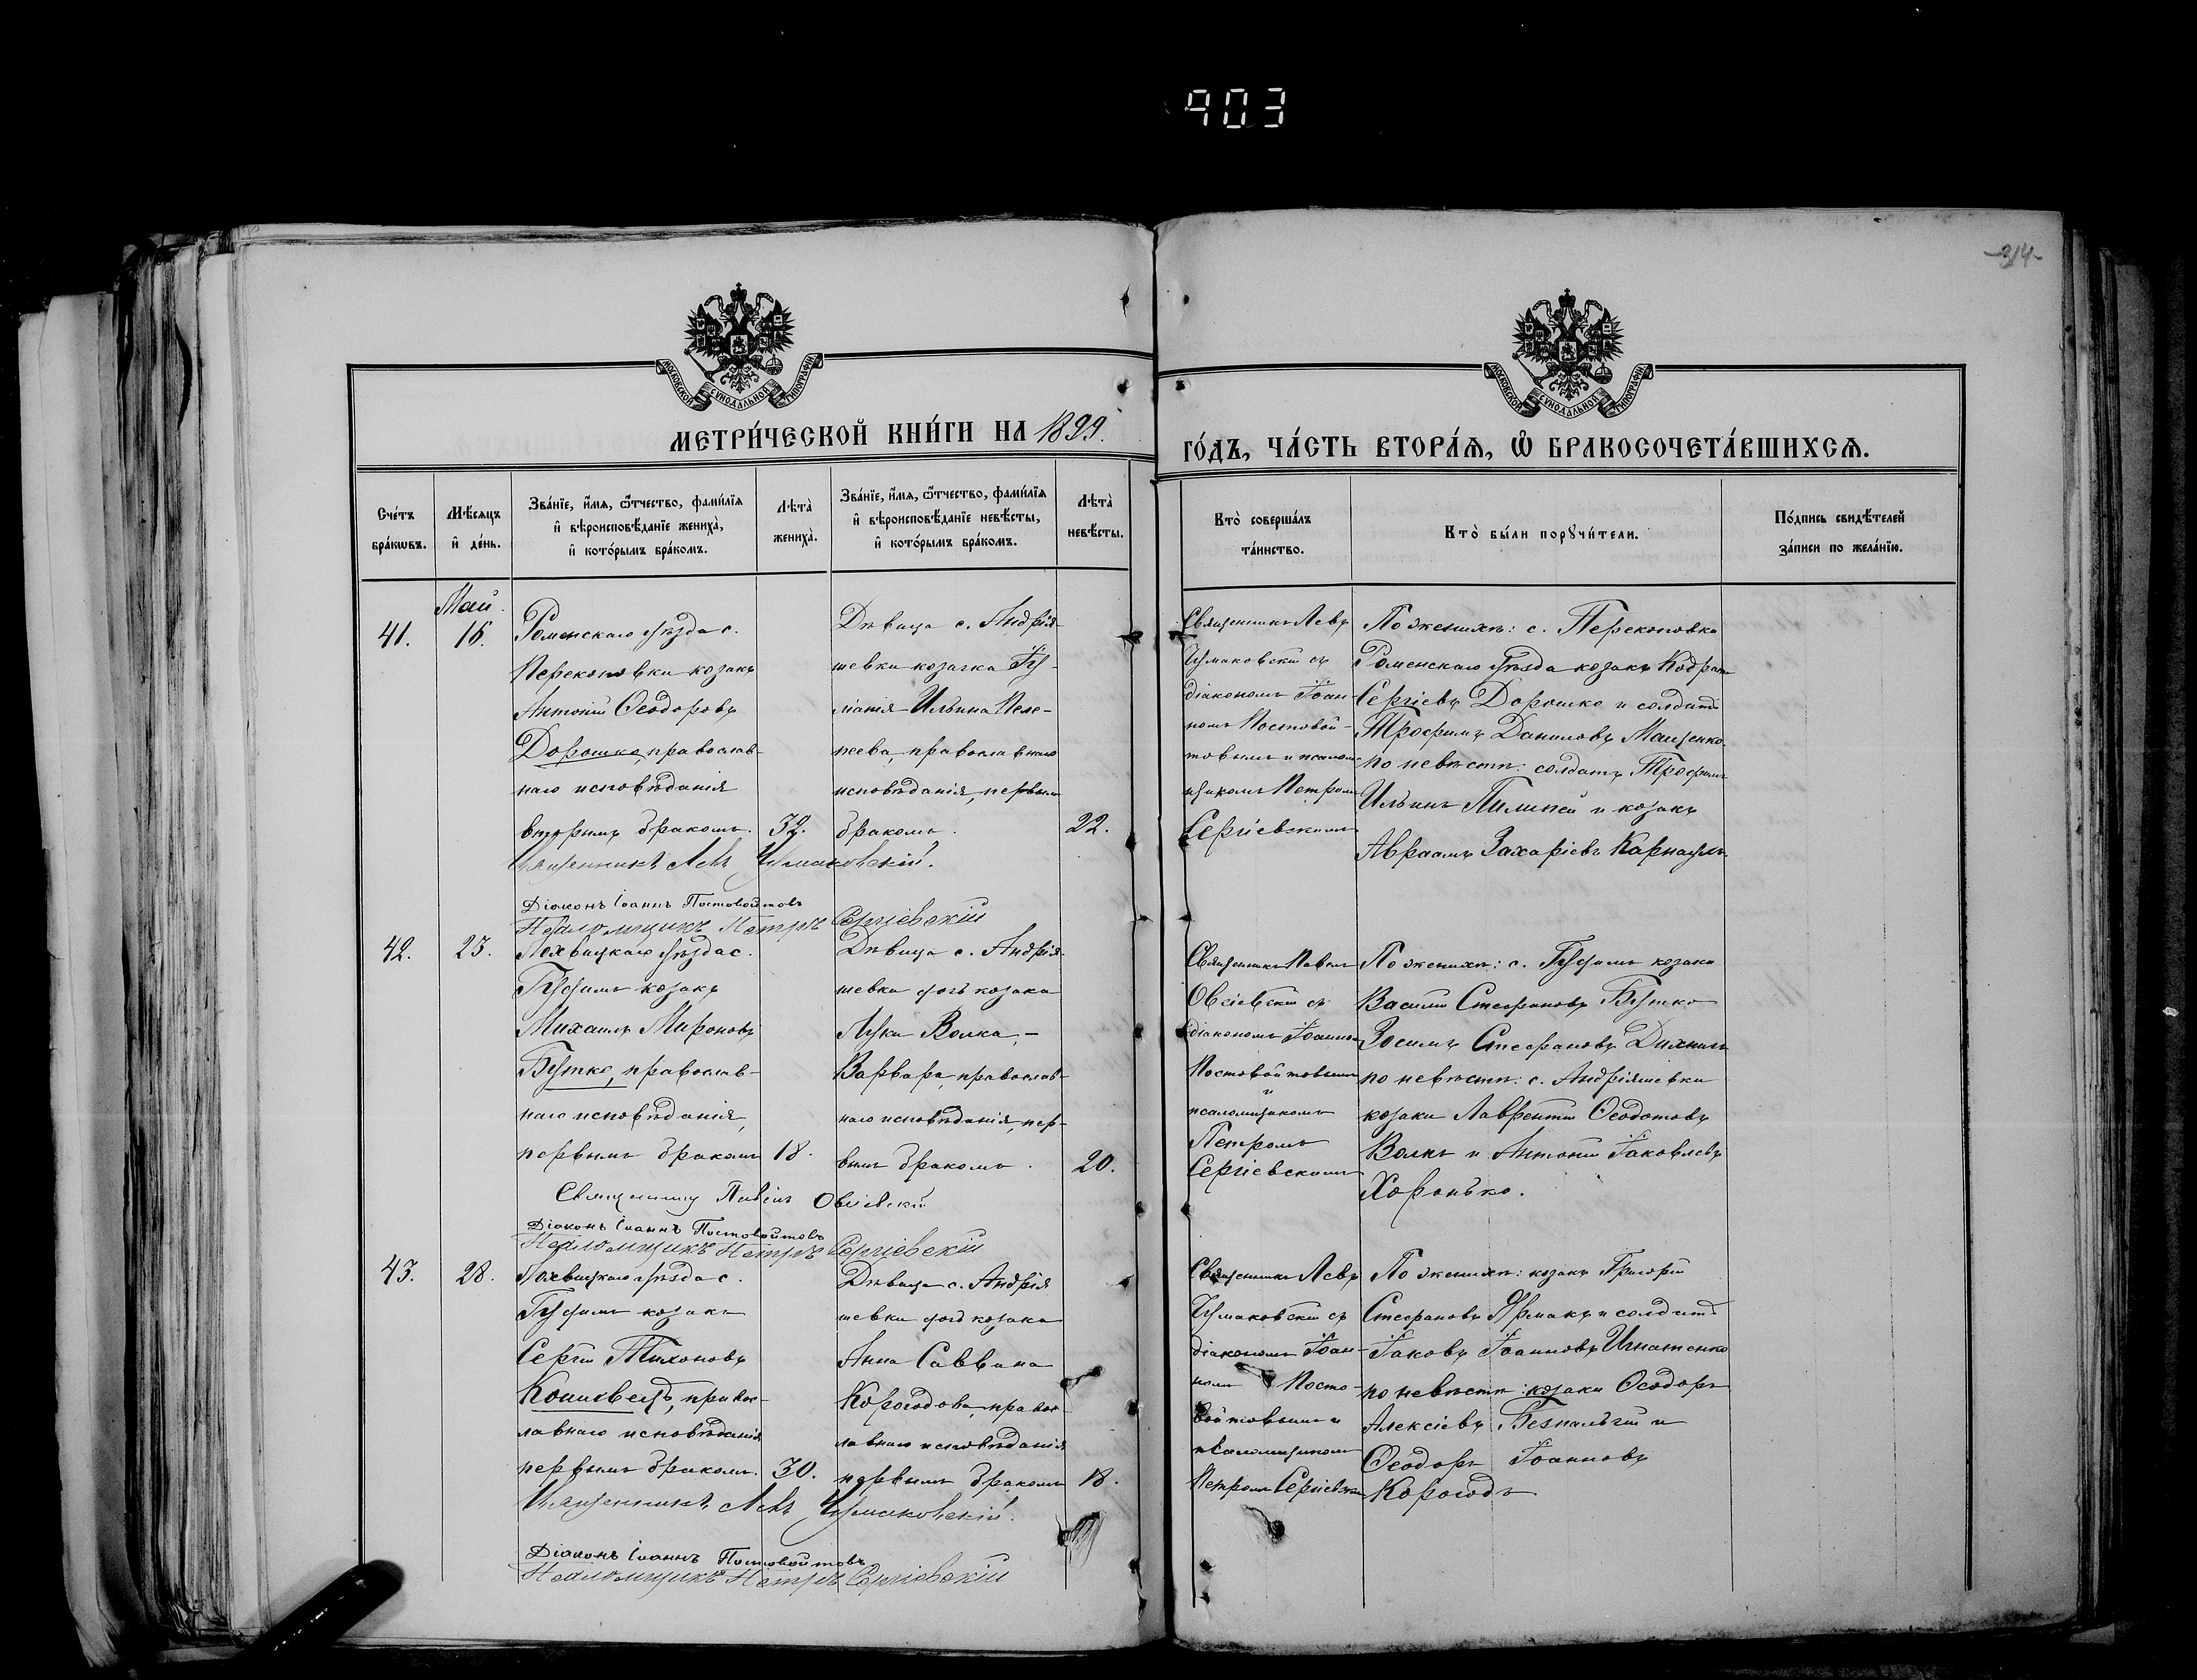 903
-314-
МОСКОВСКОЙ СѴНОДАЛЬНОЙ ТИПОГРАФІИ
МОСКОВСКОЙ СѴНОДАЛЬНОЙ ТИПОГРАФІИ
МЕТРИ́ЧЕСКОЙ КНИ́ГИ НА 1899.
ГО́ДЪ, ЧА́СТЬ ВТОРА́Ѧ, Ѽ БРАКОСОЧЕТА́ВШИХСѦ.
Сче́тъ
бра́кѡвъ.
Мѣ́сѧцъ
и҆ де́нь.
Зва́нїе, и҆́мѧ, ѻ҆́тчество, фами́лїѧ
и҆ вѣроисповѣ́данїе жениха̀,
и҆ кото́рымъ бра́комъ.
Лѣта̀
жениха̀.
Зва́нїе, и҆́мѧ, ѻ҆́тчество, фами́лїѧ
и҆ вѣроисповѣ́данїе невѣ́сты,
и҆ кото́рымъ бра́комъ.
Лѣта̀
невѣ́сты.
Кто̀ соверша́лъ
та́инство.
Кто̀ бы́ли порꙋчи́тели.
По́дпись свидѣ́телей
за́писи по жела́нїю.
Май.
41.
16.
Роменскаго уѣзда с.
Перекоповки козакъ
Антоній Ѳеодоровъ
Дорошко, православ-
наго исповѣданія
вторымъ бракомъ.
32.
Дѣвица с. Андрія-
шевки козачка Гу-
Ильина Пеле-
пеева, православнаго
исповѣданія, первым
бракомъ.
22.
Священникъ Левъ
Чумаковскій съ
діакономъ Іоан-
номъ Постовой-
товымъ и псалом
щикомъ Петромъ
Сергіевскимъ
По женихѣ: с. Перекоповки
Роменскаго уѣзда козакъ Кодрат
Сергіевъ Дорошко и солдатъ
Трофимъ Даниловъ Мащенко.
по невѣстѣ: солдатъ Трофимъ
Ильинъ Пилипей и козакъ
Авраамъ Захаріевъ Карнаухъ.
Священникъ Левъ Чумаковскій.
Діаконъ Іоаннъ Постовойтовъ
Псаломщикъ Петръ Сергіевскій
42.
23.
Лохвицкаго уѣзда с.
козакъ
Михаилъ Мироновъ
Бутко, православ-
наго исповѣданія,
первымъ бракомъ
18.
Дѣвица с. Андрія-
шевки дочь козака
Луки Волка, -
Варвара, православ-
наго исповѣданія, пер-
вымъ бракомъ.
20.
Священникъ Павелъ
Овсіевскій съ
діакономъ Іоанномъ
Постовойтовымъ
и
псаломщикомъ
Петромъ
Сергіевскимъ
По женихѣ: с. козаки
Василій Стефановъ Бутко
Зосимъ Стефановъ
по невѣстѣ: с. Андріяшевки
козаки Лаврентій Ѳеодотовъ
Волкъ и Антоній Іаковлевъ
Хоронько.
Священникъ Павелъ Овсіевскій
Діаконъ Іоаннъ Постовойтовъ
Псаломщикъ Петръ Сергіевскій
43.
28.
Лохвицкаго уѣзда с.
козакъ
Сергій Тихоновъ
правос-
лавнаго исповѣданія
первымъ бракомъ.
30.
Дѣвица с. Андрія
шевки дочь козака
Анна Саввина
Корогодова, правос-
лавнаго исповѣданія
первымъ бракомъ
18.
Священникъ Левъ
Чумаковскій съ
діакономъ Іоан-
номъ Посто-
войтовымъ и
псаломщикомъ
Петромъ Сергіевским
По женихѣ: козакъ Григорій
Стефановъ Ярмакъ и солдатъ
Іаковъ Іоанновъ Игнатенко
по невѣстѣ: козаки Ѳеодоръ
Алексіевъ Безпалый и
Ѳеодоръ Іоанновъ
Корогодъ
Священникъ Левъ Чумаковскій.
Діаконъ Іоаннъ Постовойтовъ
Псаломщикъ Петръ Сергіевскій